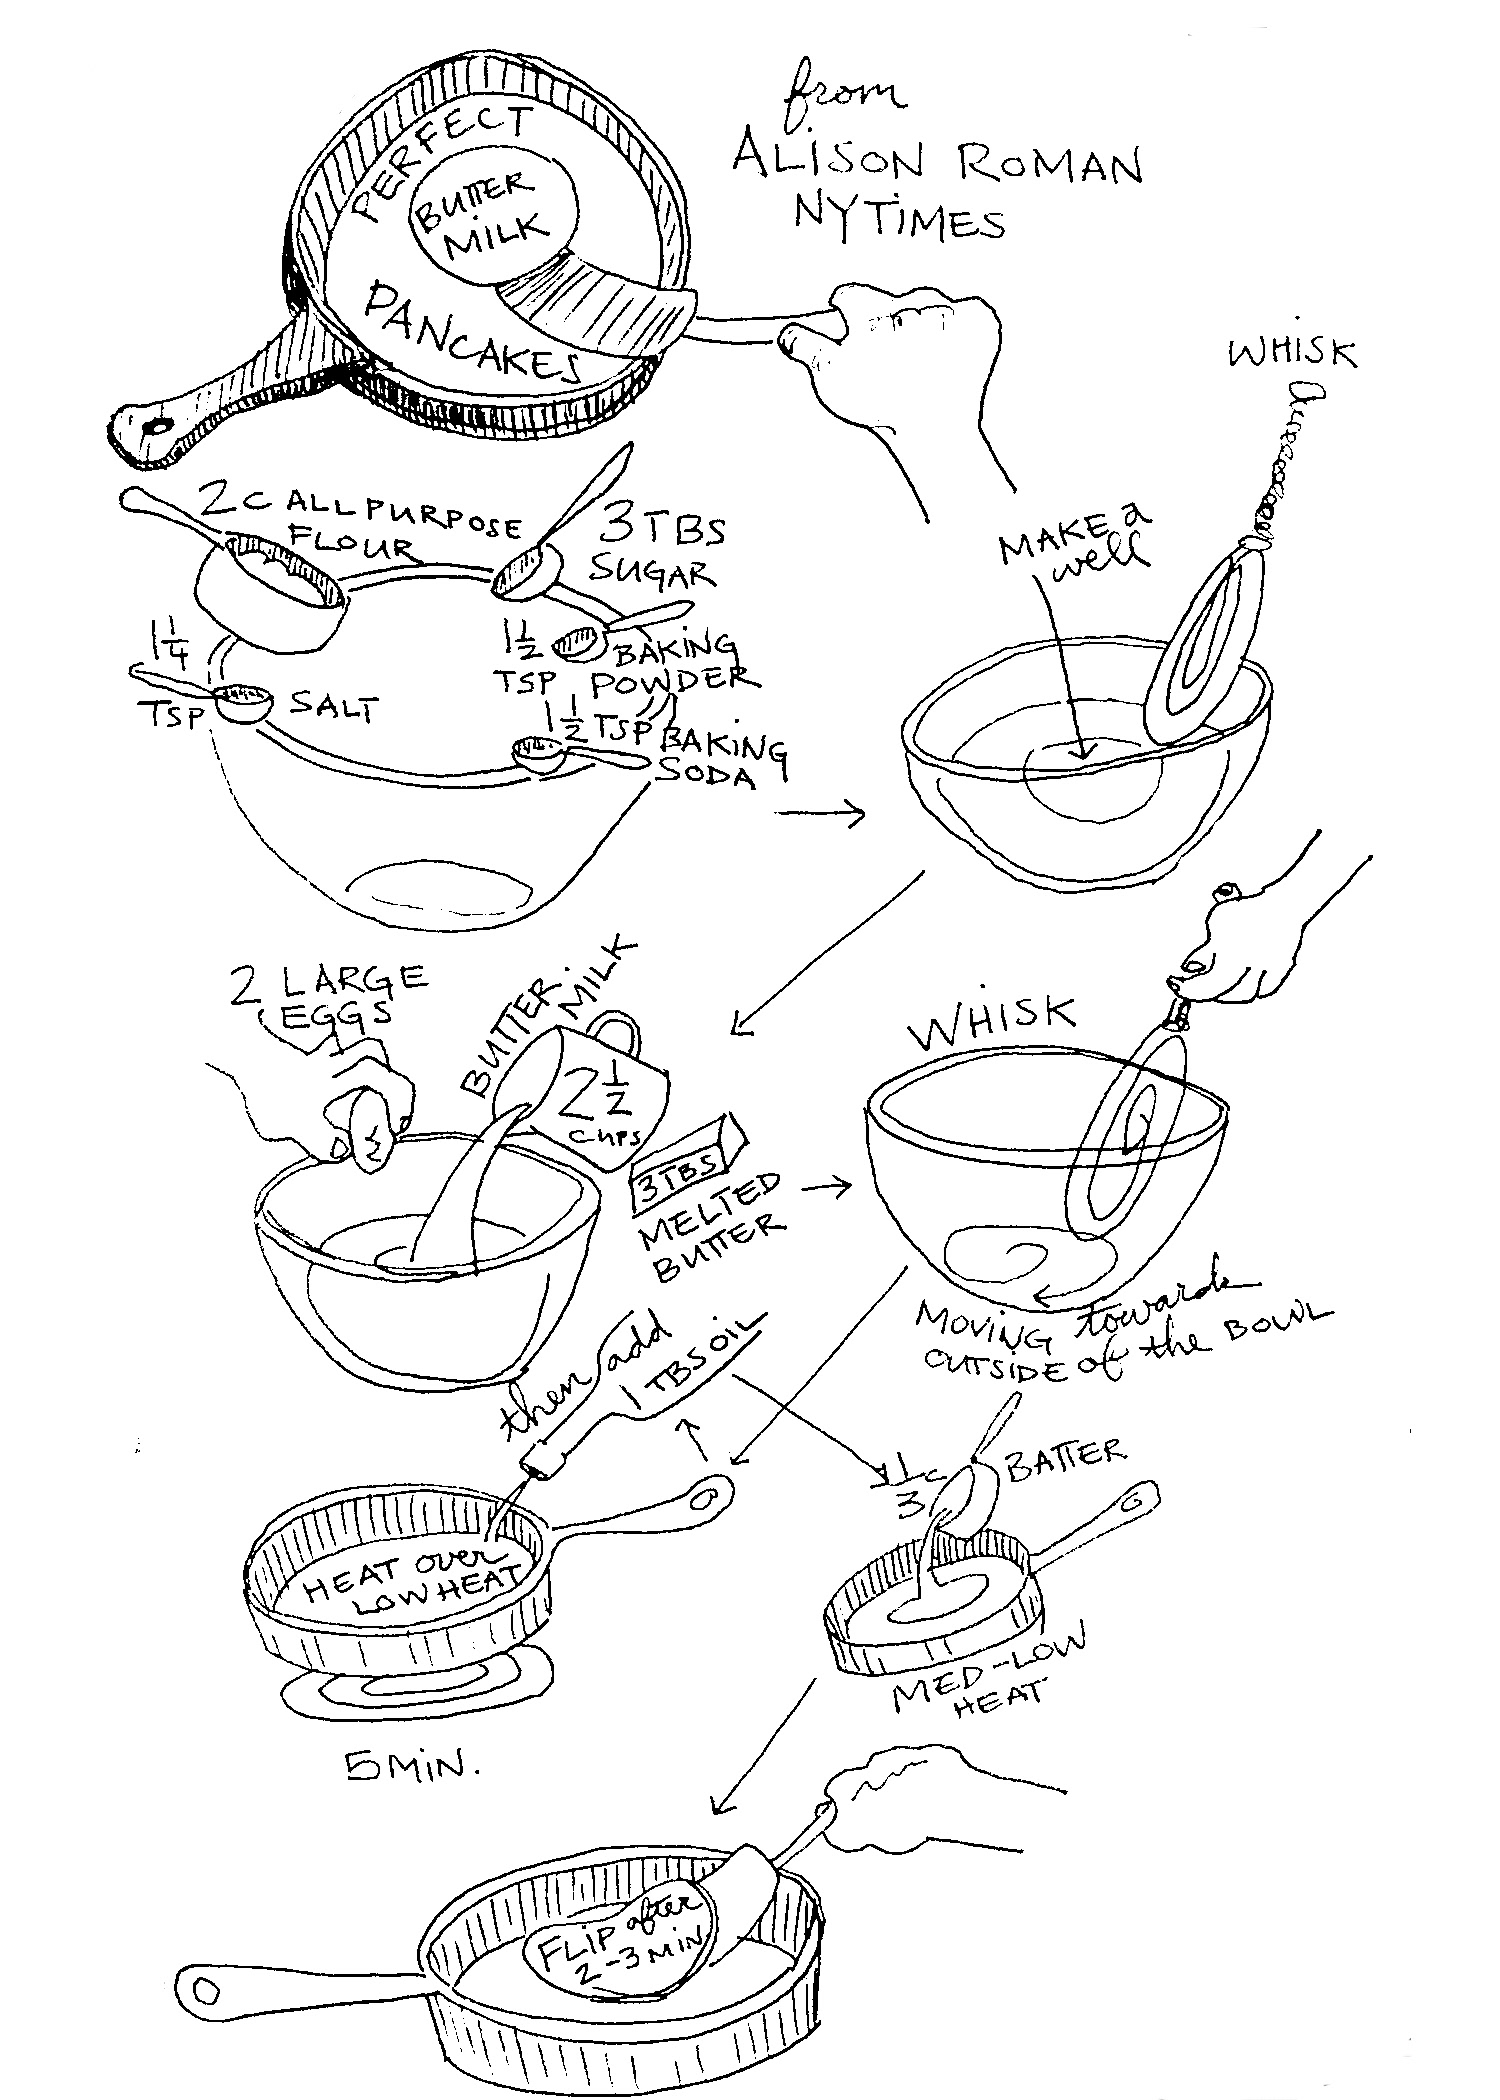 PERFECT
BUTTER
MILK
PANCAKES
from
ALISON ROMAN
NYTIMES
2C ALL PURPOSE
FLOUR
3 TBS
SUGAR
1 1/4
TSP
SALT
1 1/2
TSP
BAKING
POWDER
1 1/2 TSP
BAKING
SODA
WHISK
MAKE a
well
2 LARGE
EGGS
BUTTER
MILK
2 1/2
CUPS
3 TBS
MELTED
BUTTER
WHISK
MOVING towards
OUTSIDE of the BOWL
then add
1 TBS OIL
HEAT over
LOW HEAT
5 MIN.
1/3 c
BATTER
MED-LOW
HEAT
FLIP after
2-3 MIN